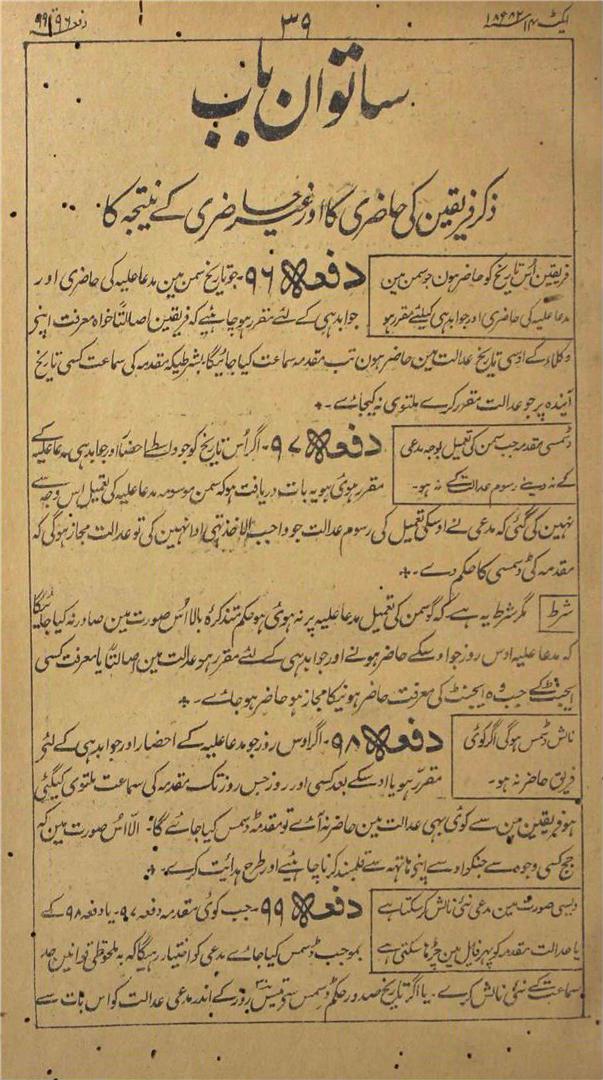 ایکٹ ۱۴ ۱۸۸۲ ۳۹ دفعہ ۹۶ ۹۹
ساتوان باب
ذکر فریقین کی حاضری کا اور غیر حاضری کے نتیجہ کا
فریقین اُس تاریخ کو حاضر ہون جو سمن مین
مدعا علیہ کی حاضری اور جوابدہی کیلئے مقرر ہو
دفعہ ۹۶۔ جو تاریخ سمن مین مدعا علیہ کی حاضری اور
جوابدہی کے لئے مقرر ہو چاہئیے کہ فریقین اصالتاً خواہ معرفت اپنے
وکلاء کے اوسی تاریخ عدالت مین حاضر ہون تب مقدمہ سماعت کیا جائیگا بشرطیکہ مقدمہ کی سماعت کسی تاریخ
آیندہ پر جو عدالت مقرر کرے ملتوی نہ کیجاے۔+
ڈسمسی مقدمہ جب سمن کی تعمیل بوجہ مدعی
کے نہ دینے رسوم عدالت کے نہ ہو۔
دفعہ ۹۷۔ اگر اُس تاریخ کو جو واسطے احضار اور جوابدہی مدعا علیہ کے
مقرر ہوئی ہو یہ بات دریافت ہو کہ سمن موسومہ مدعا علیہ کی تعمیل اس وجہ سے
نہین کی گئی کہ مدعی نے اوسکی تعمیل کی رسوم عدالت جو واجب الاخذ تہی ادا نہین کی تو عدالت مجاز ہوگی کہ
مقدمہ کی ڈسمسی کا حکم دے۔+
شرط مگر شرط یہ ہے کہ گو سمن کی تعمیل مدعا علیہ پر نہ ہوئی ہو حکم متذکرہ بالا اُس صورت مین صادر نہ کیا جائیگا
کہ مدعا علیہ اوس روز جو اوسکے حاضر ہونے اور جوابدہی کے لئے مقرر ہو عدالت مین اصالتاً یا معرفت کسی
ایجنٹ کے جب وہ ایجنٹ کی معرفت حاضر ہونیکا مجاز ہو حاضر ہو جاے۔+
نالش ڈسمس ہوگی اگر کوئی
فریق حاضر نہ ہو۔
دفعہ ۹۸۔ اگر اوس روز جو مدعا علیہ کے احضار اور جوابدہی کے لئے
مقرر ہو یا اوسکے بعد کسی اور روز جس روز تک مقدمہ کی سماعت ملتوی کیگئی
ہو فریقین مین سے کوئی بہی عدالت مین حاضر نہ آے تو مقدمہ ڈسمس کیا جائے گا۔ الّا اُس صورت مین کہ
جج کسی وجوہ سے جنکو اوسے اپنی ہاتھہ سے قلمبند کرنا چاہئیے اور طرح ہدایت کرے۔+
ایسی صورت مین مدعی نئی نالش کر سکتا ہے
یا عدالت مقدمہ کو پہر فایل مین چڑہا سکتی ہے
دفعہ ۹۹۔ جب کوئی مقدمہ دفعہ ۹۷۔ یا دفعہ ۹۸ کے
بموجب ڈسمس کیا جاے مدعی کو اختیار رہیگا کہ بہ ملحوظی قوانین حد
سماعت کے نئی نالش کرے۔ یا اگر تاریخ صدور حکم ڈسمس سے تیس روز کے اندر مدعی عدالت کو اس بات سے